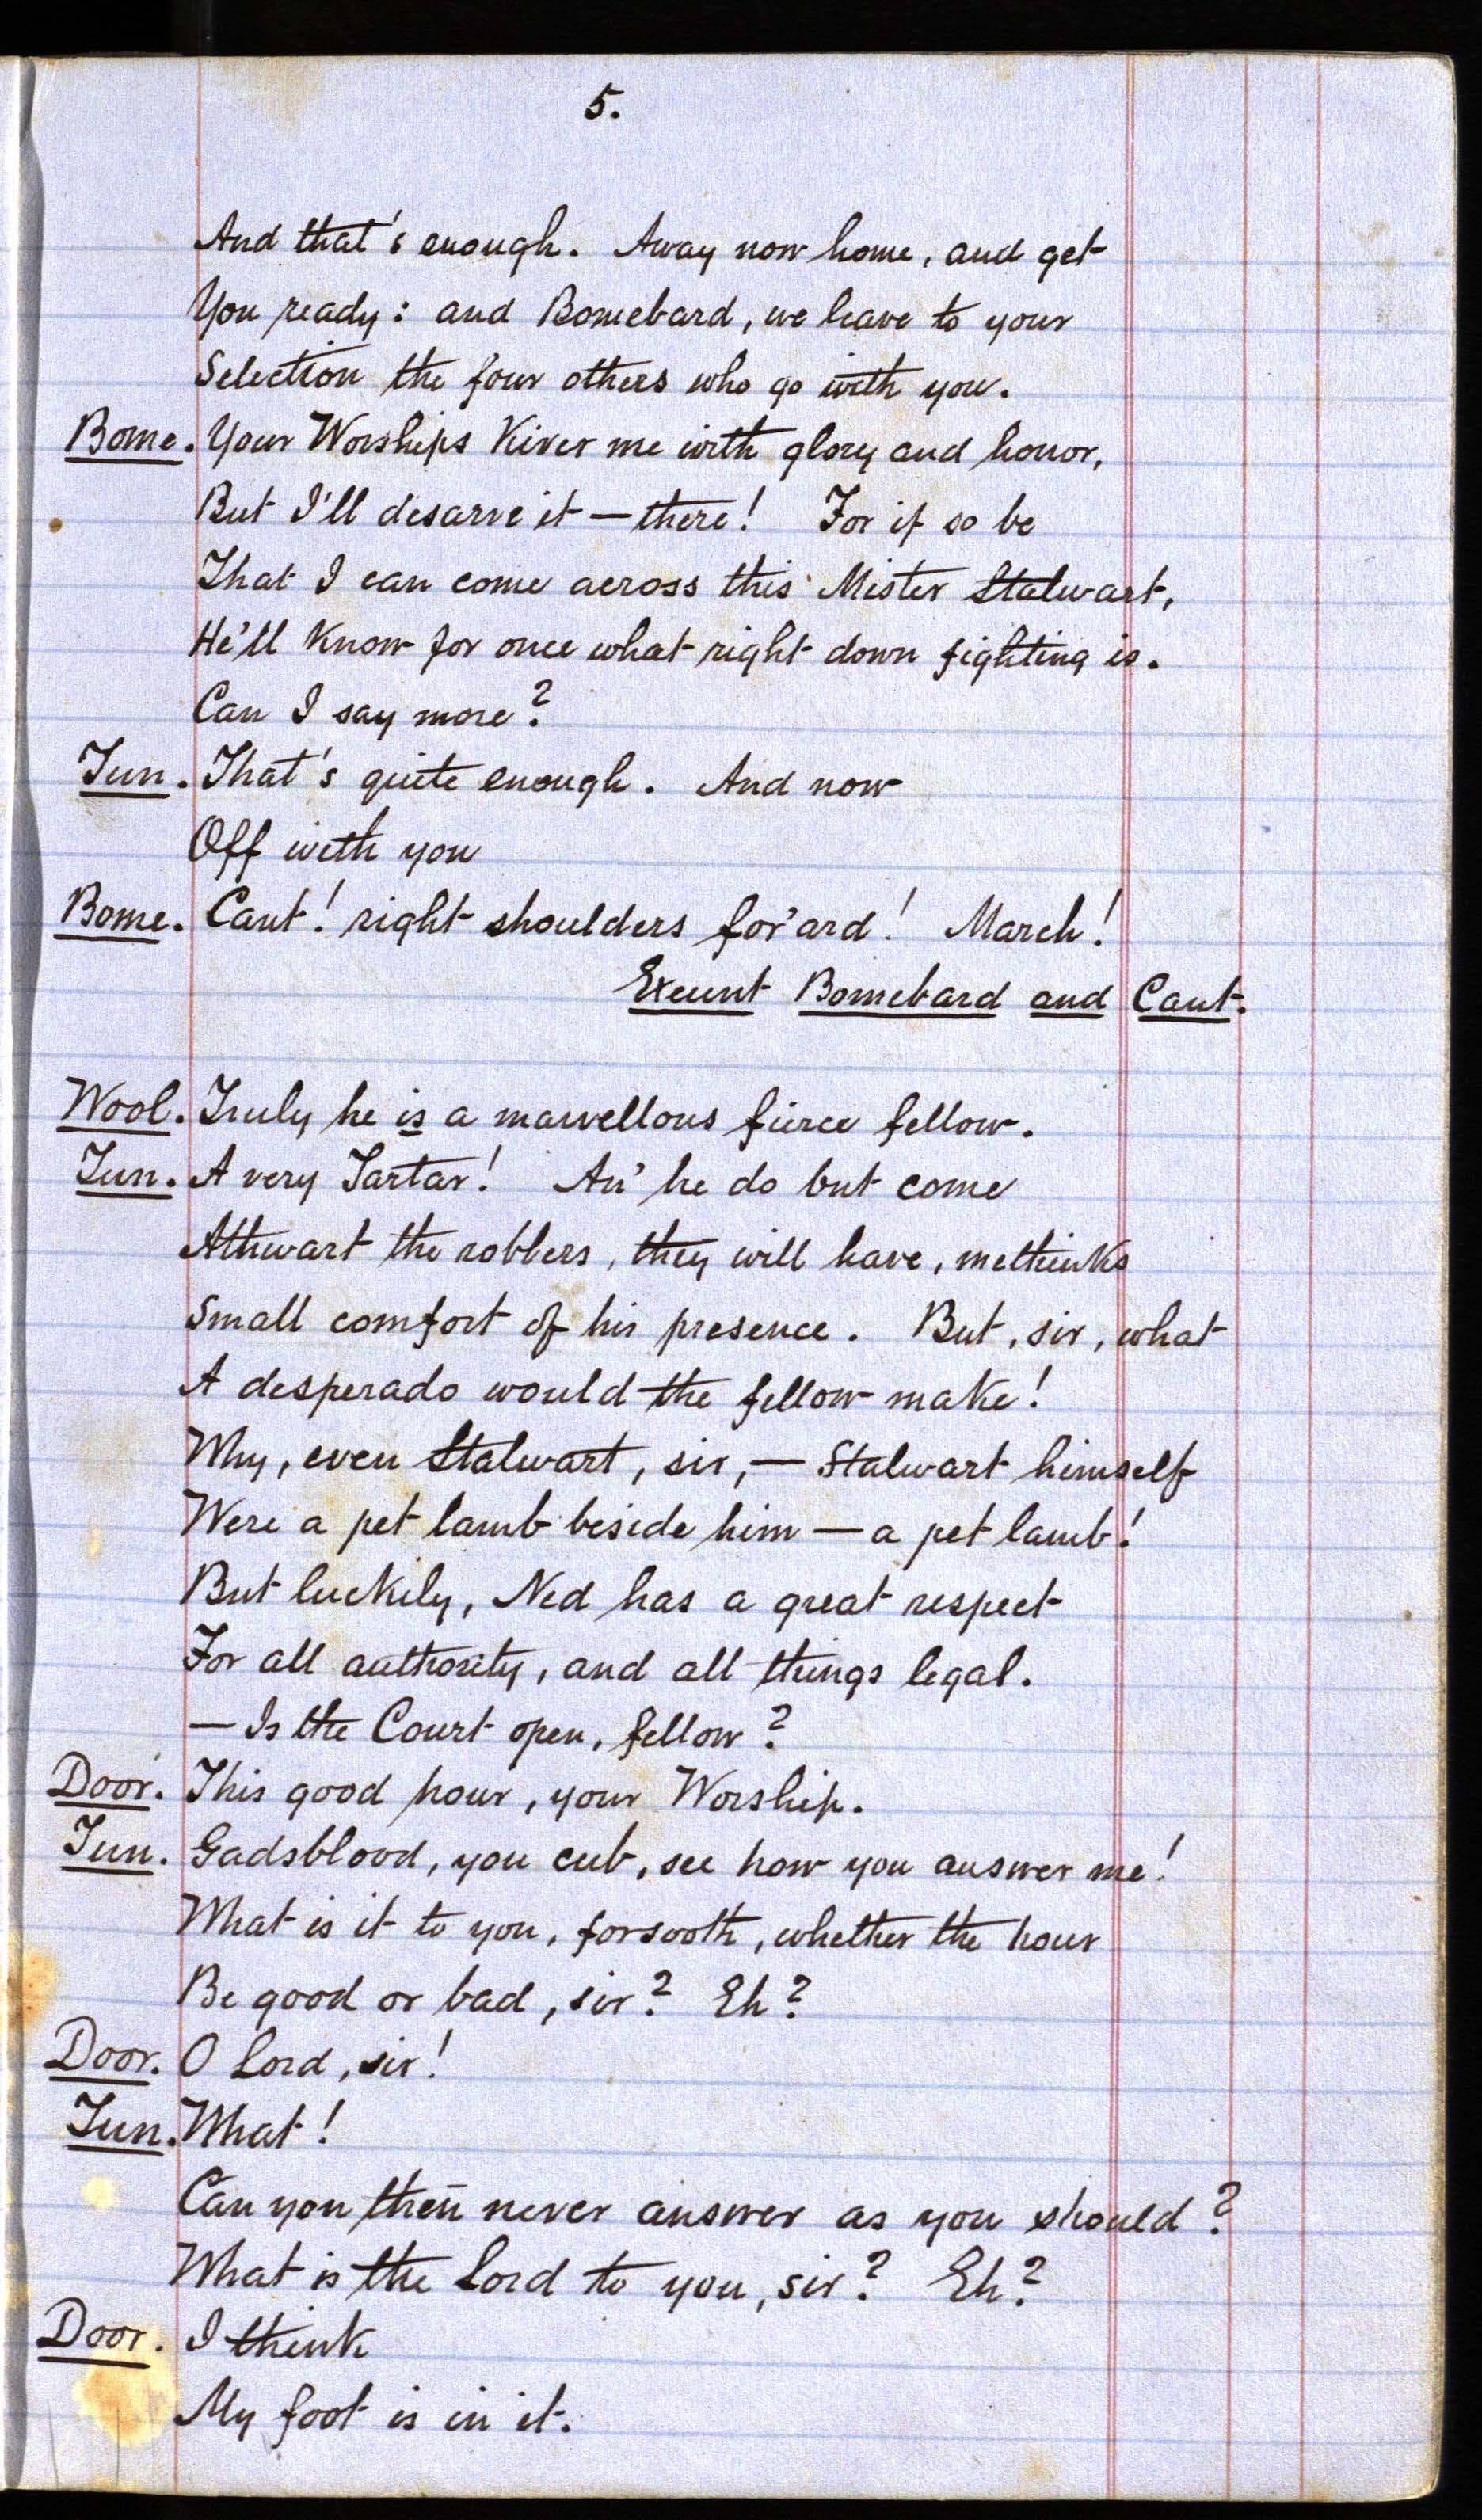 5.
And that's enough. Away now home, and get
You ready: and Bomebard, we leave to your
Selection the four others who go with you.
Bome. Your Worships Kiver me with glory and honor,
But I'll desarve it — there! For if so be
That I can come across this Mister Stalwart,
He'll Know for once what right down fighting is.
Can I say more?
Tun. That's quite enough. And now
Off with you
Bome. Caut! right shoulders for'ard! March!
Exeunt Bomebard and Caut.
Wool. Truly he is a marvellous fierce fellow.
Tun. A very Tartar! An' he do but come
Athwart the robbers, they will have, methinks
Small comfort of his presence. But, sir, what
A desperado would the fellow make!
Why, even Stalwart, sir, — Stalwart himself
Were a pet lamb beside him — a pet lamb!
But luckily, Ned has a great respect
For all authority, and all things legal.
— Is the Court open, fellow?
Door. This good hour, your Worship.
Tun. Gadsblood, you cub, see how you answer me!
What is it to you, forsooth, whether the hour
Be good or bad, sir? Eh?
Door. O Lord, sir!
Tun. What!
Can you then never answer as you should?
What is the Lord to you, sir? Eh?
Door. I think
My foot is in it.